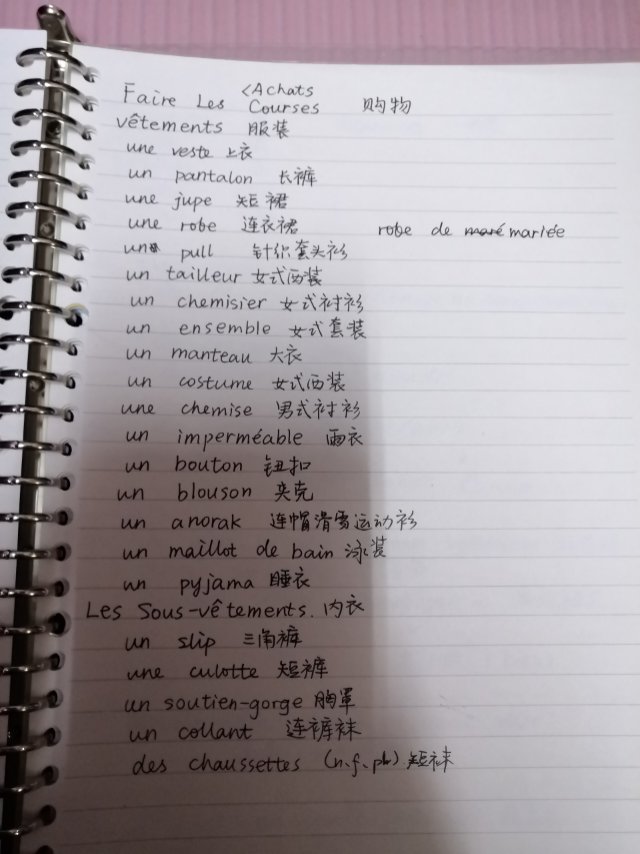 <Achats
Faire Les Courses 购物
vêtements 服装
une veste 上衣
un pantalon 长裤
une jupe 短裙
une robe 连衣裙 robe de mariée
un pull 针织套头衫
un tailleur 女式西装
un chemisier 女式衬衫
un ensemble 女式套装
un manteau 大衣
un costume 女式西装
une chemise 男式衬衫
un imperméable 雨衣
un bouton 钮扣
un blouson 夹克
un anorak 连帽滑雪运动衫
un maillot de bain 泳装
un pyjama 睡衣
Les Sous-vêtements. 内衣
un slip 三角裤
une culotte 短裤
un soutien-gorge 胸罩
un collant 连裤袜
des chaussettes (n.f.pl.) 短袜